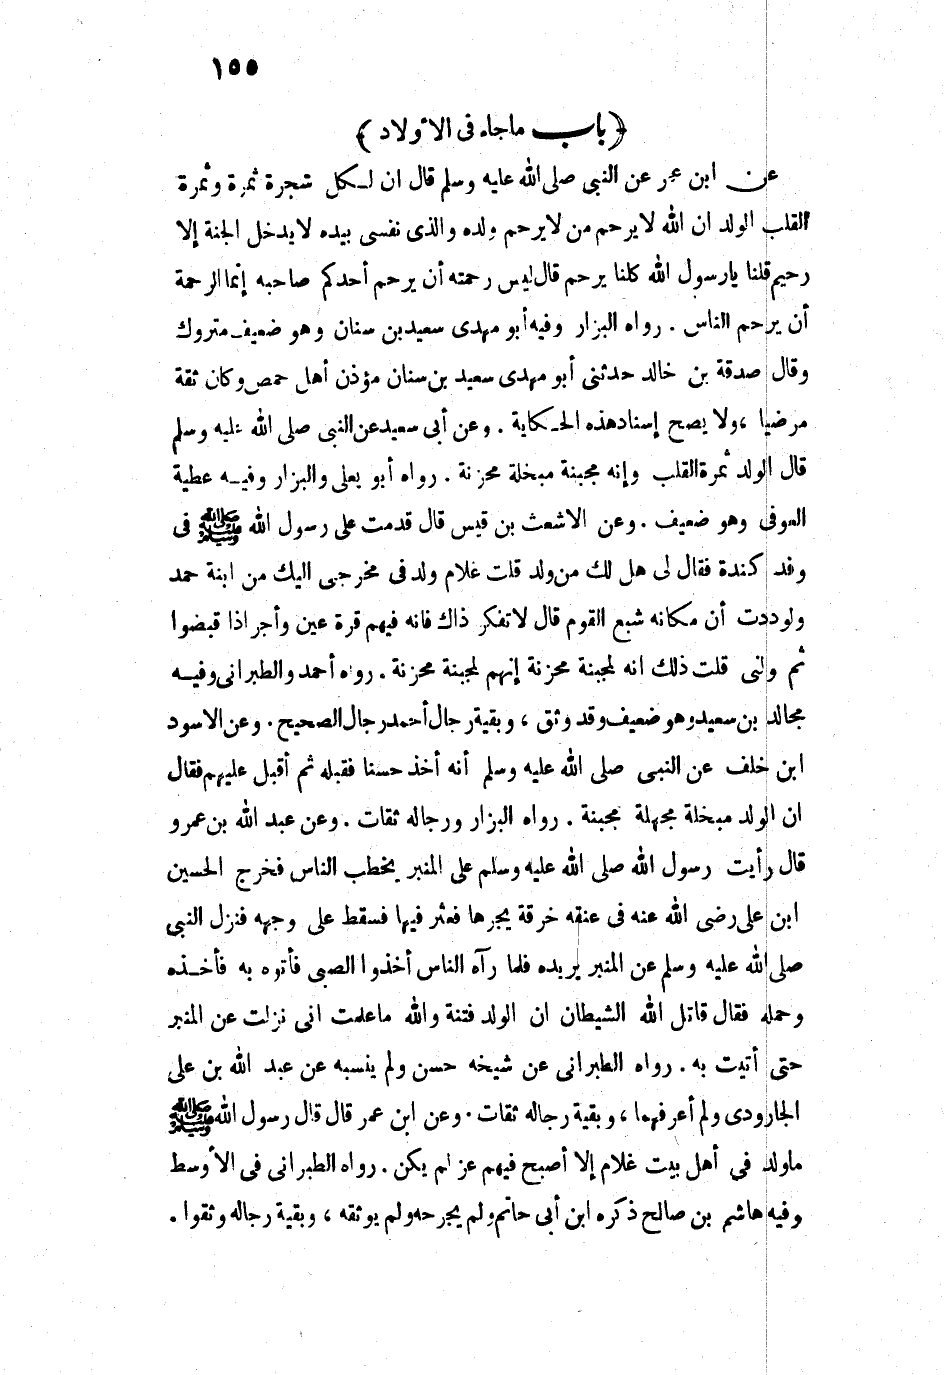 ١٥٥
﴿باب ماجاء فى الأولاد﴾
عن ابن عمر عن النبى صلى الله عليه وسلم قال ان لكل شجرة ثمرة وثمرة
القلب الولد ان الله لا يرحم من لا يرحم ولده والذى نفسى بيده لا يدخل الجنة إلا
رحيم قلنا يارسول الله كلنا يرحم قال ليس رحمته أن يرحم أحدكم صاحبه إنما الرحمة
أن يرحم الناس . رواه البزار وفيه أبو مهدى سعيد بن سنان وهو ضعيف متروك
وقال صدقة بن خالد حدثنى أبو مهدى سعيد بن سنان مؤذن أهل حمص وكان ثقة
مرضيا ، ولا يصح إسناد هذه الحكاية . وعن أبى سعيد عن النبى صلى الله عليه وسلم
قال الولد ثمرة القلب وإنه مجبنة مبخلة محزنة . رواه أبو يعلى والبزار وفيه عطية
العوفى وهو ضعيف . وعن الاشعث بن قيس قال قدمت على رسول الله ﷺ فى
وفد كندة فقال لى هل لك من ولد قلت غلام ولد فى مخرجى اليك من ابنة حمد
ولوددت أن مكانه شبع القوم قال لا تفكر ذاك فانه فيهم قرة عين وأجر اذا قبضوا
ثم ولنى قلت ذلك انه لمجبنة محزنة إنهم لمجبنة محزنة . رواه أحمد والطبرانى وفيه
مجالد بن سعيد وهو ضعيف وقد وثق ، وبقية رجال أحمد رجال الصحيح . وعن الاسود
ابن خلف عن النبى صلى الله عليه وسلم أنه أخذ حسنا فقبله ثم أقبل عليهم فقال
ان الولد مبخلة مجهلة مجبنة . رواه البزار ورجاله ثقات . وعن عبد الله بن عمرو
قال رأيت رسول الله صلى الله عليه وسلم على المنبر يخطب الناس فخرج الحسين
ابن على رضى الله عنه فى عنقه خرقة يجرها فعثر فيها فسقط على وجهه فنزل النبى
صلى الله عليه وسلم عن المنبر يريده فلما رآه الناس أخذوا الصبى فأتوه به فأخذه
وحمله فقال قاتل الله الشيطان ان الولد فتنة والله ماعلمت انى نزلت عن المنبر
حتى أتيت به . رواه الطبرانى عن شيخه حسن ولم ينسبه عن عبد الله بن على
الجارودى ولم أعرفهما ، وبقية رجاله ثقات . وعن ابن عمر قال قال رسول الله ﷺ
ماولد في أهل بيت غلام إلا أصبح فيهم عز لم يكن . رواه الطبرانى فى الأوسط
وفيه هاشم بن صالح ذكره ابن أبى حاتم ولم يجرحه ولم يوثقه ، وبقية رجاله وثقوا .